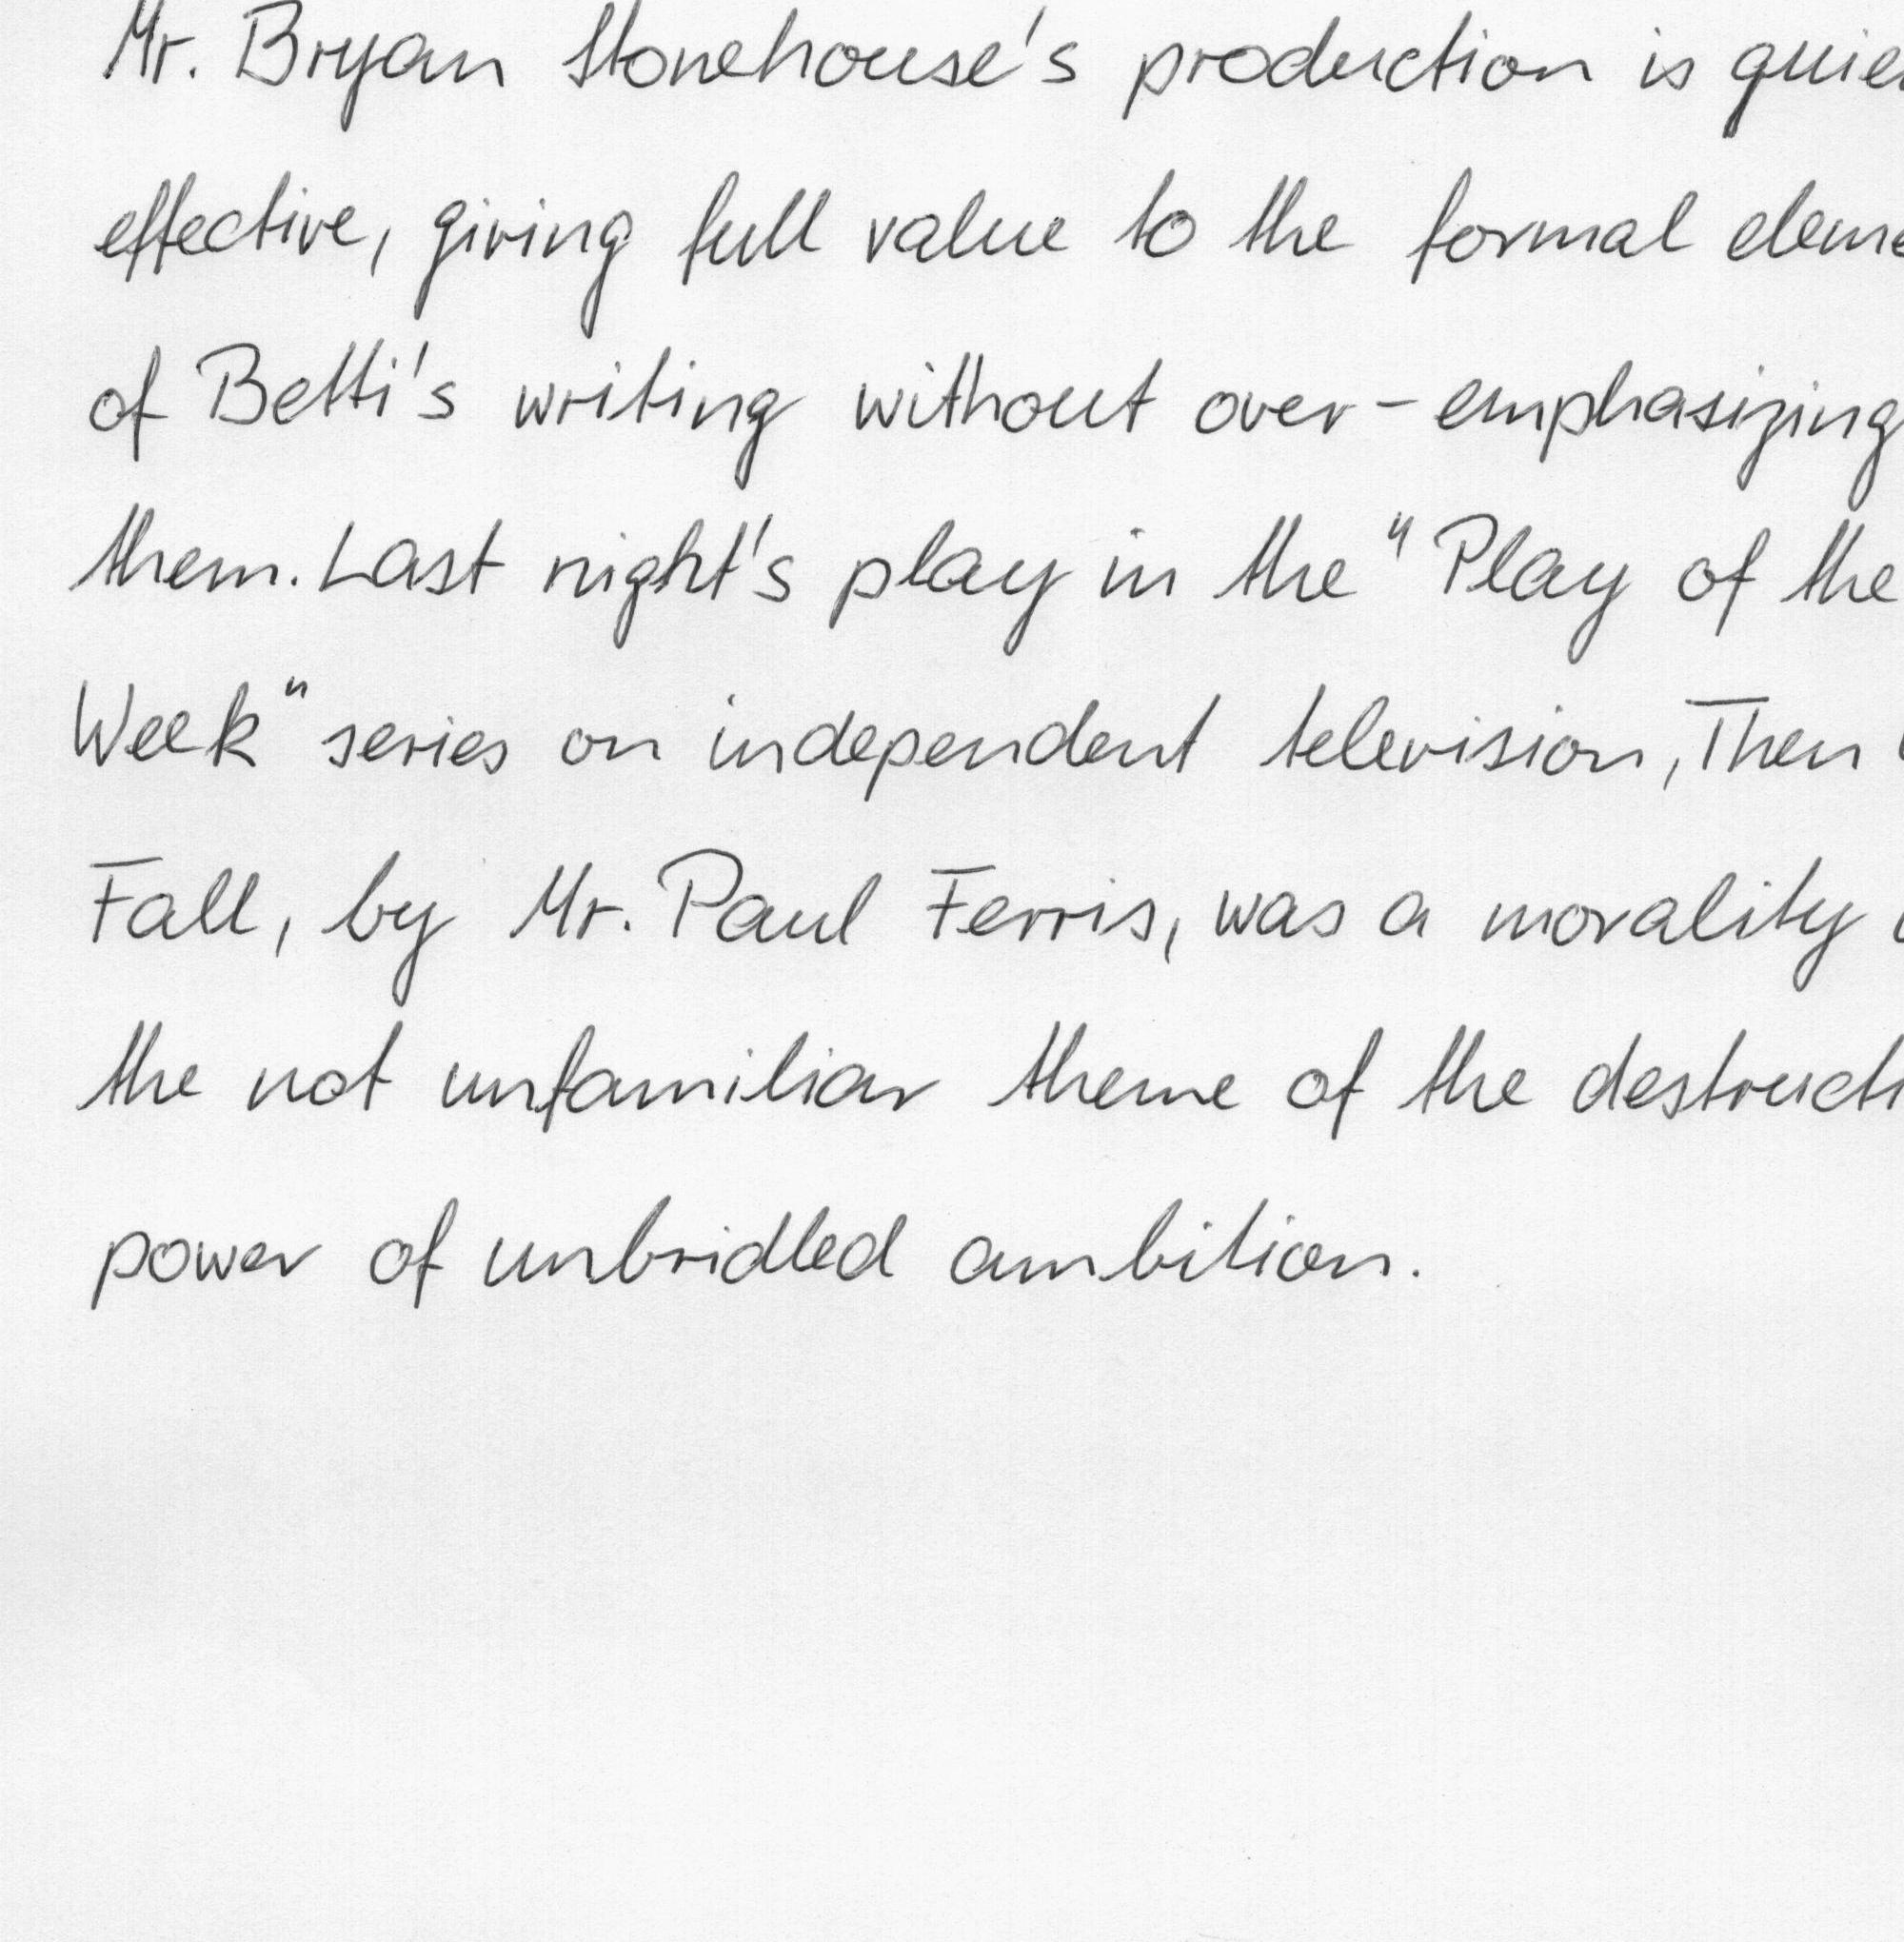 Mr. Bryan Stonehouse's production is
effective, giving full value to the formal
of Betti's writing without over-emphasizing
them. Last night's play in the "Play of the
Week" series on independent television, Then
Fall, by Mr. Paul Ferris, was a morality
the not unfamiliar theme of the
power of unbridled ambition.